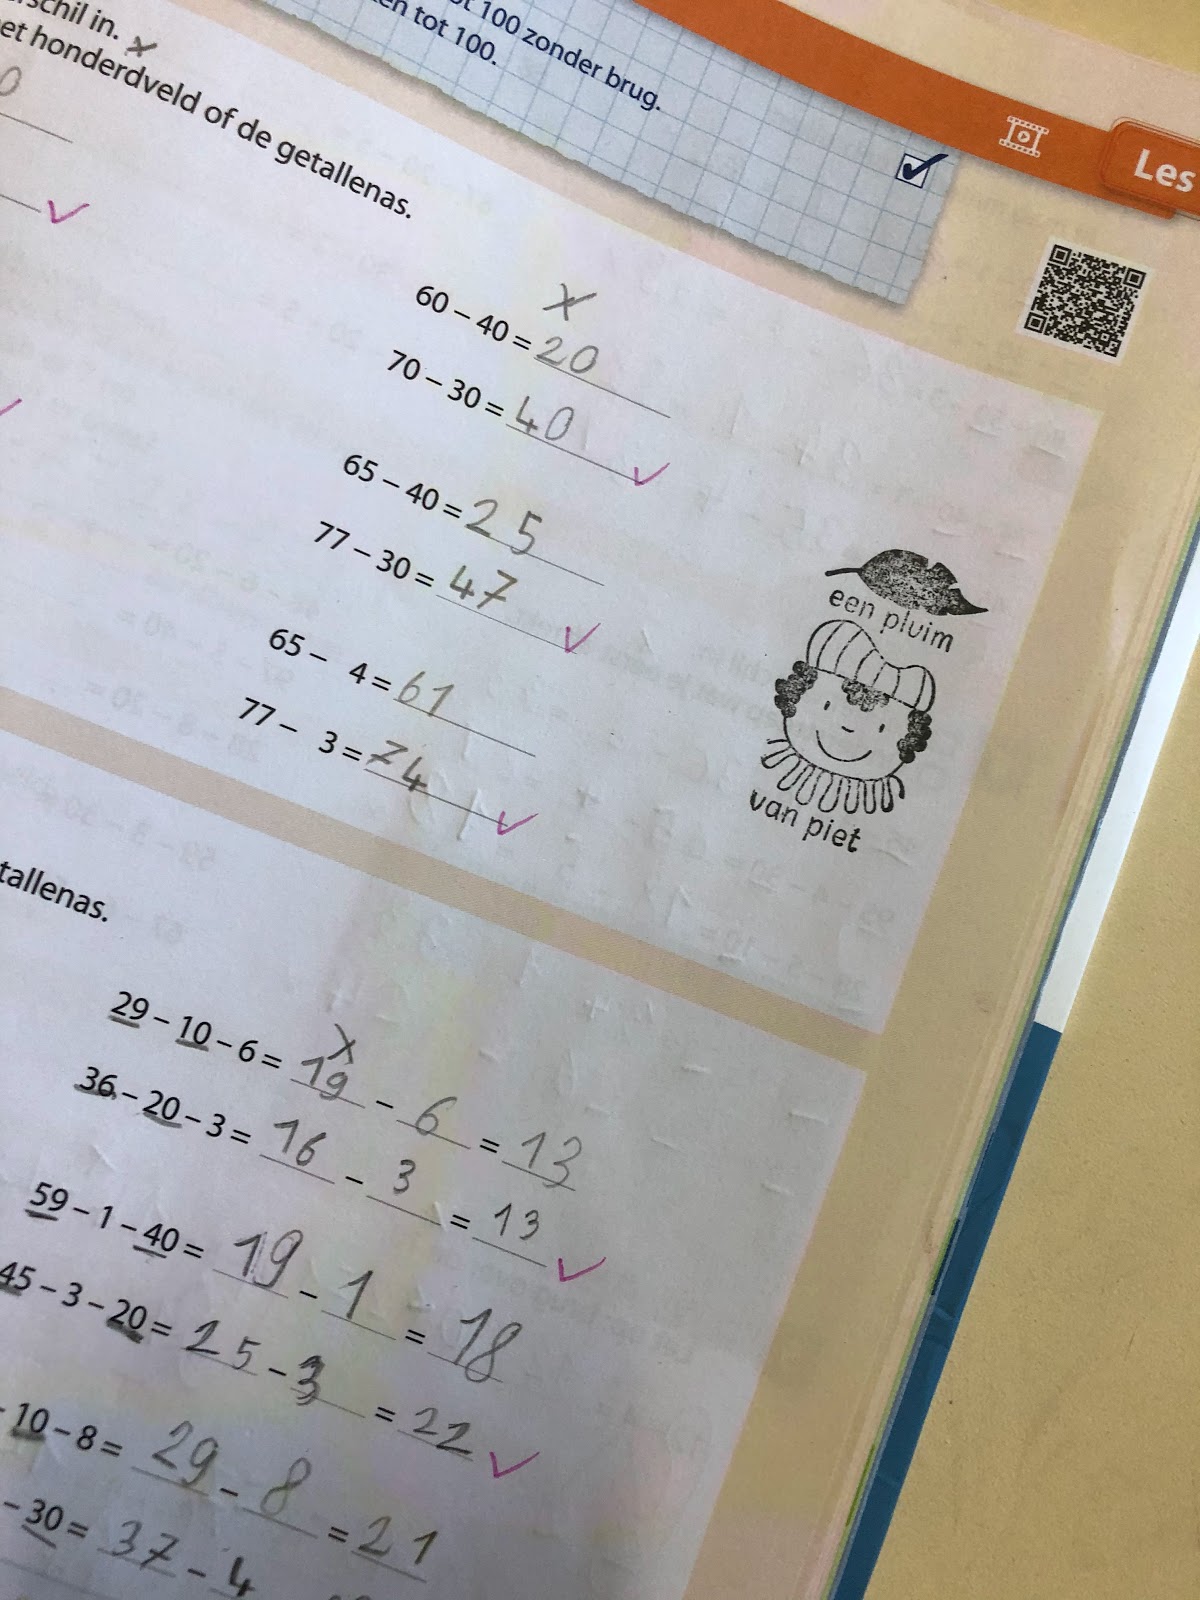 t 100 zonder brug.
en tot 100.
schil in.
et honderdveld of de getallenas.
Les
0
x
x
60 – 40 = 20
70 – 30 = 40
65 – 40 = 25
77 – 30 = 47
65 – 4 = 61
77 – 3 = 74
een pluim
van piet
tallenas.
x
29 – 10 – 6 = 19 – 6 = 13
36 – 20 – 3 = 16 – 3 = 13
59 – 1 – 40 = 19 – 1 = 18
45 – 3 – 20 = 25 – 3 = 22
– 10 – 8 = 29 – 8 = 21
– 30 = 37 – 4